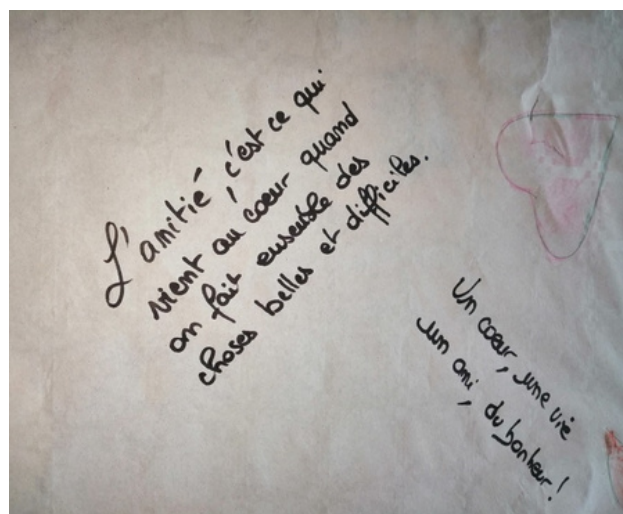 L'amitié, c'est ce qui
vient au coeur quand
on fait ensemble des
choses belles et difficiles.
Un coeur, une vie
un ami, du bonheur !